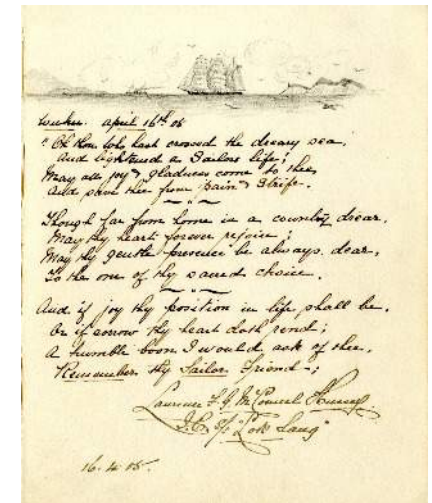 april 16th 05
"Oh thou who hast crossed the dreary sea.
And lightened a Sailors life;
May all joy & gladness come to thee,
And save thee from pain & Strife.
Though far from home in a country drear.
May thy heart forever rejoice;
May thy gentle presence be always dear,
To the one of thy sacred choice.
And if joy thy position in life shall be.
Or if sorrow thy heart doth rend;
A humble boon I would ask of thee,
Remember thy Sailor Friend -;
Laurence F. G.
"Lok Sang"
16.4.05.